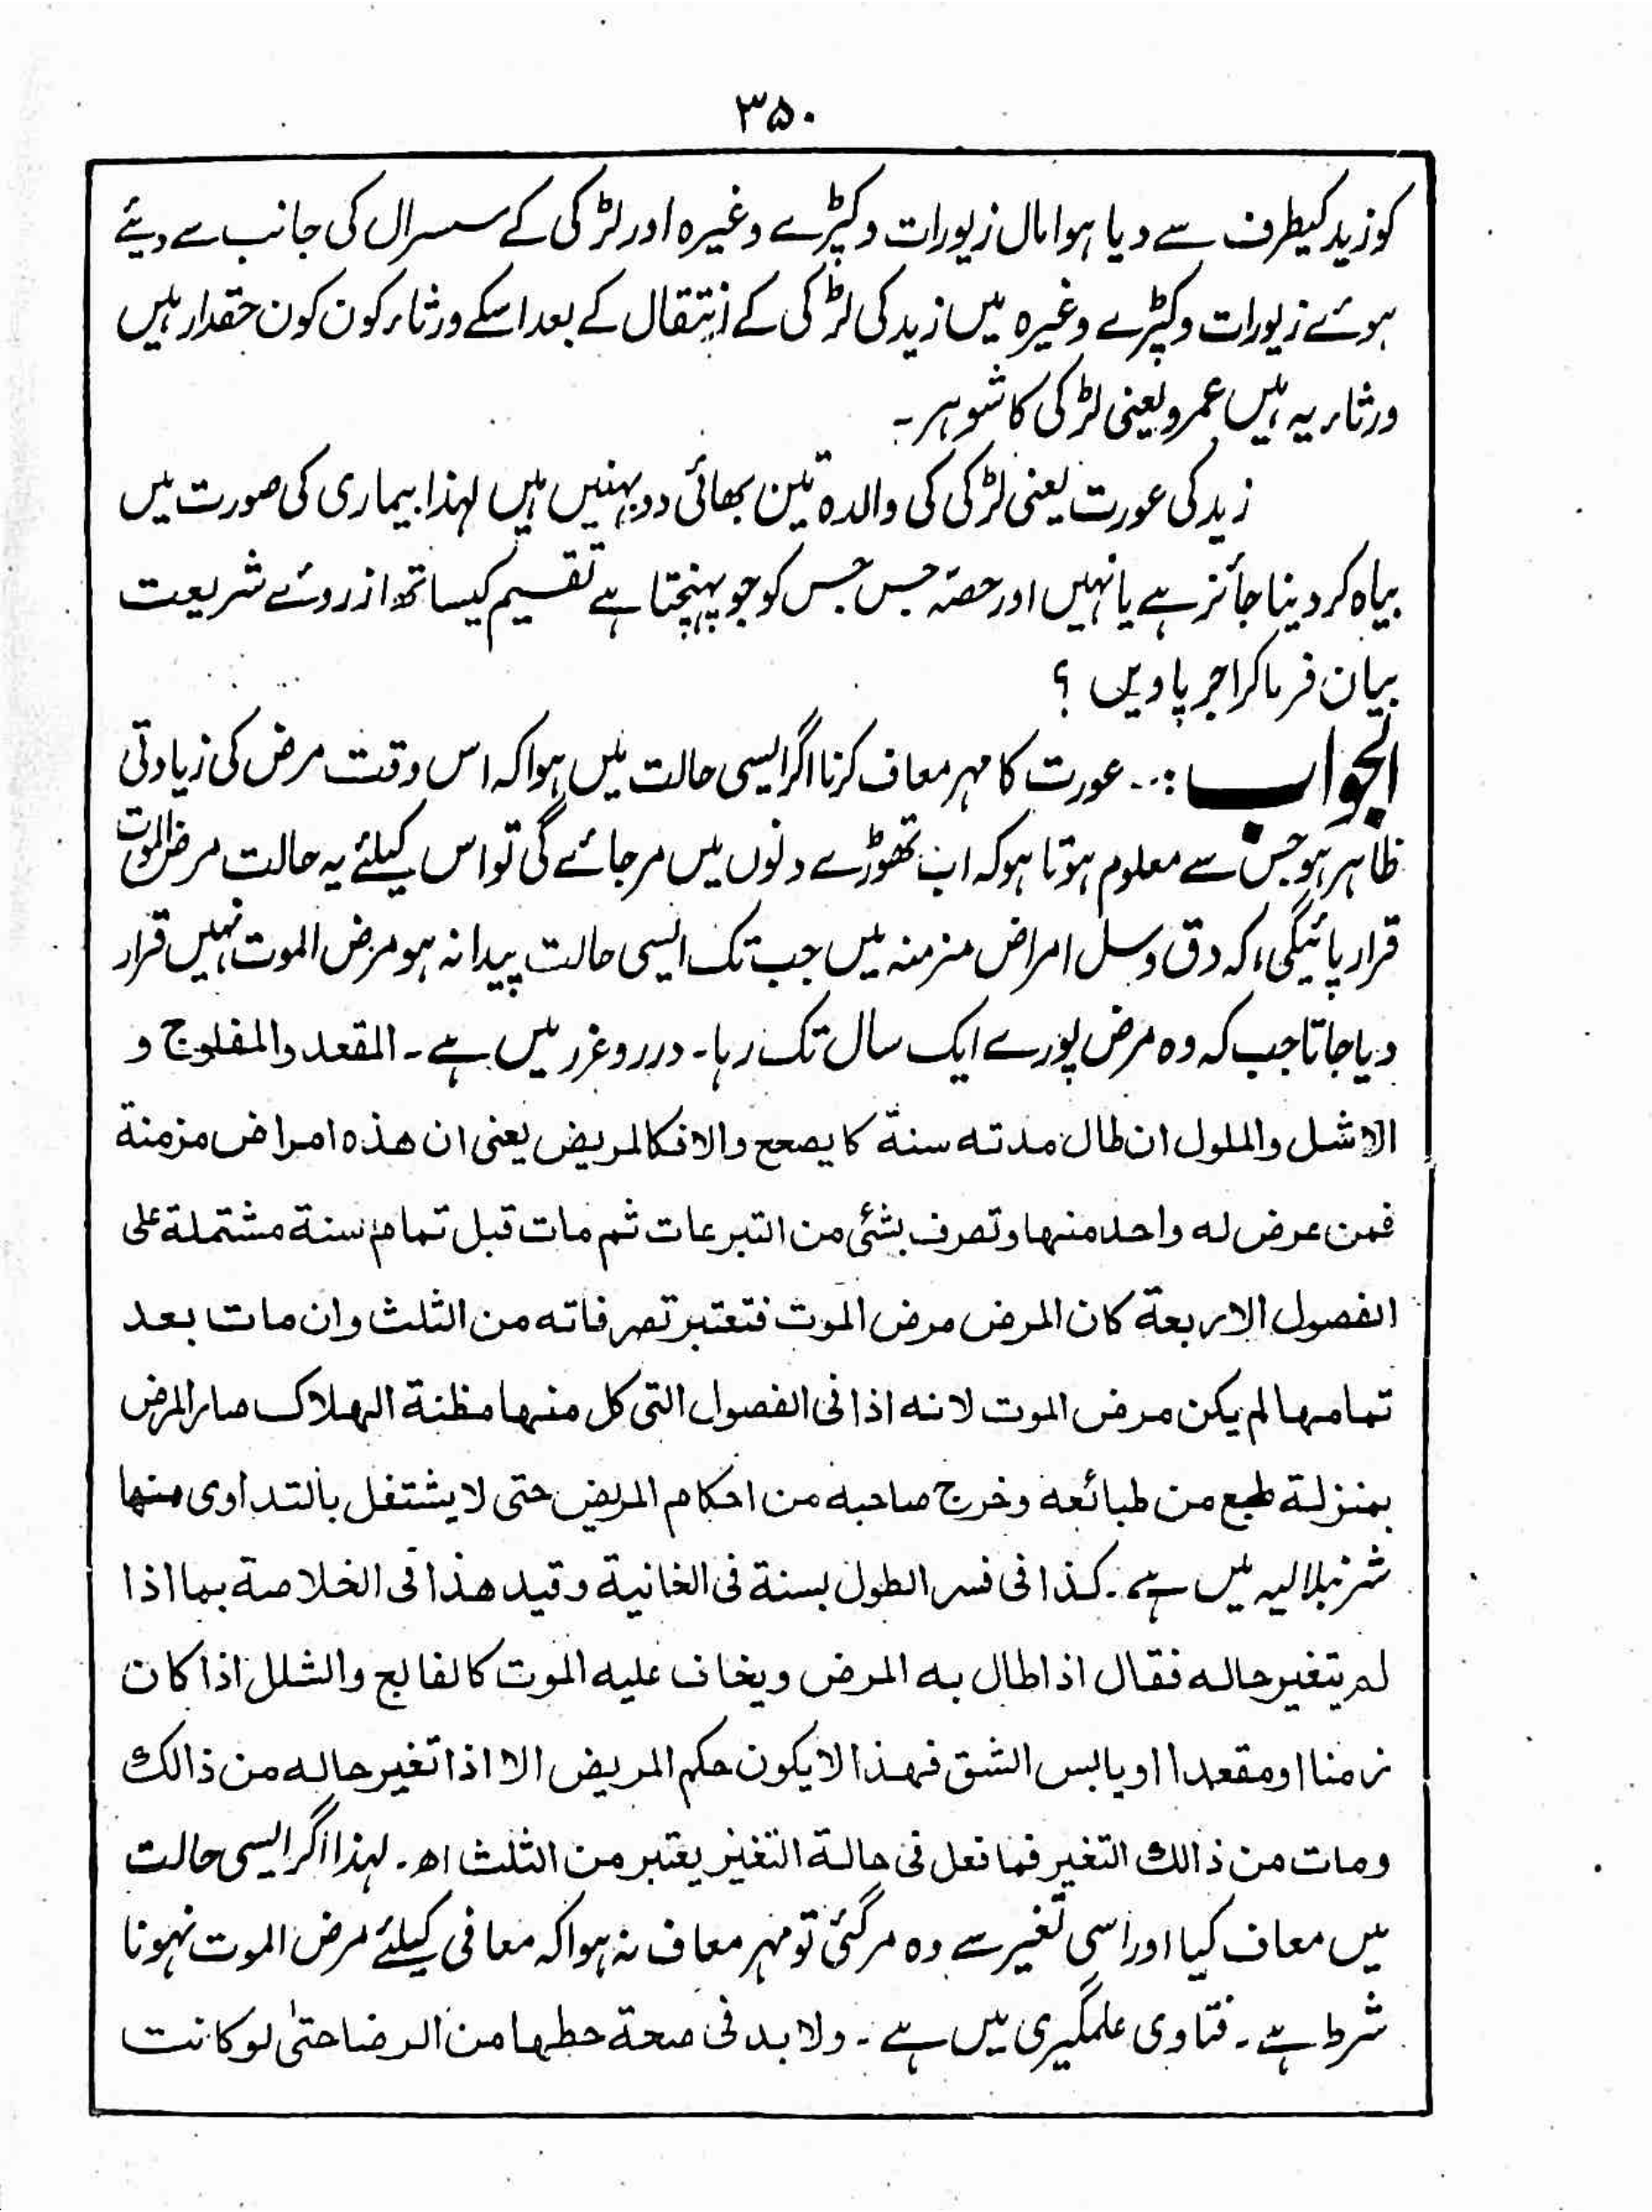 ۳۵۰
کو زید کیطرف سے دیا ہوا مال زیورات و کپڑے وغیرہ اور لڑکی کے سسرال کی جانب سے دیئے
ہوئے زیورات و کپڑے وغیرہ میں زید کی لڑکی کے انتقال کے بعد اسکے ورثاء کون کون حقدار ہیں
ورثاء یہ ہیں عمرو یعنی لڑکی کا شوہر۔
زید کی عورت یعنی لڑکی کی والدہ تین بھائی دو بہنیں ہیں لہذا بیماری کی صورت میں
بیاہ کر دینا جائز ہے یا نہیں اور حصّہ جس جس کو جو پہنچتا ہے تقسیم کیساتھ از روئے شریعت
بیان فرما کر اجر پاویں ؟
الجواب :۔۔ عورت کا مہر معاف کرنا اگر ایسی حالت میں ہوا کہ اس وقت مرض کی زیادتی
ظاہر ہو جس سے معلوم ہوتا ہو کہ اب تھوڑے دنوں میں مرجائے گی تو اس کیلئے یہ حالت مرض الموت
قرار پائیگی، کہ دق و سل امراض مزمنہ میں جب تک ایسی حالت پیدا نہ ہو مرض الموت نہیں قرار
دیا جاتا جب کہ وہ مرض پورے ایک سال تک رہا۔ درر و غرر میں ہے۔ المقعد والمفلوج و
الاشل والملول ان طال مدته سنة کا یصحح والافکالمریض یعنی ان هذه امراض مزمنة
فمن عرض له واحد منها وتصرف بشئی من التبرعات ثم مات قبل تمام سنة مشتملة علی
الفصول الاربعة کان المرض مرض الموت فتعتبر تصرفاته من الثلث وان مات بعد
تمامها لم یکن مرض الموت لانه اذا فی الفصول التی کل منها مظنة الهلاک صار المرض
بمنزلة طبع من طبائعه وخرج صاحبه من احکام المریض حتی لا یشتغل بالتداوی منها
شرنبلالیہ میں ہے۔ کذا فی فسر الطول بسنة فی الخانیة وقید هذا فی الخلاصة بما اذا
لم یتغیر حاله فقال اذا طال به المرض ویخاف علیه الموت کالفالج والشلل اذا کان
زمنا او مقعدا او یابس الشق فهذا لا یکون حکم المریض الا اذا تغیر حاله من ذالک
ومات من ذالک التغیر فما فعل فی حالة التغیر یعتبر من الثلث اھ۔ لہذا اگر ایسی حالت
میں معاف کیا اور اسی تغیر سے وہ مرگئی تو مہر معاف نہ ہوا کہ معافی کیلئے مرض الموت نہونا
شرط ہے۔ فتاوی علمگیری میں ہے۔ ولا بد فی صحة حطها من الرضا حتیٰ لو کانت